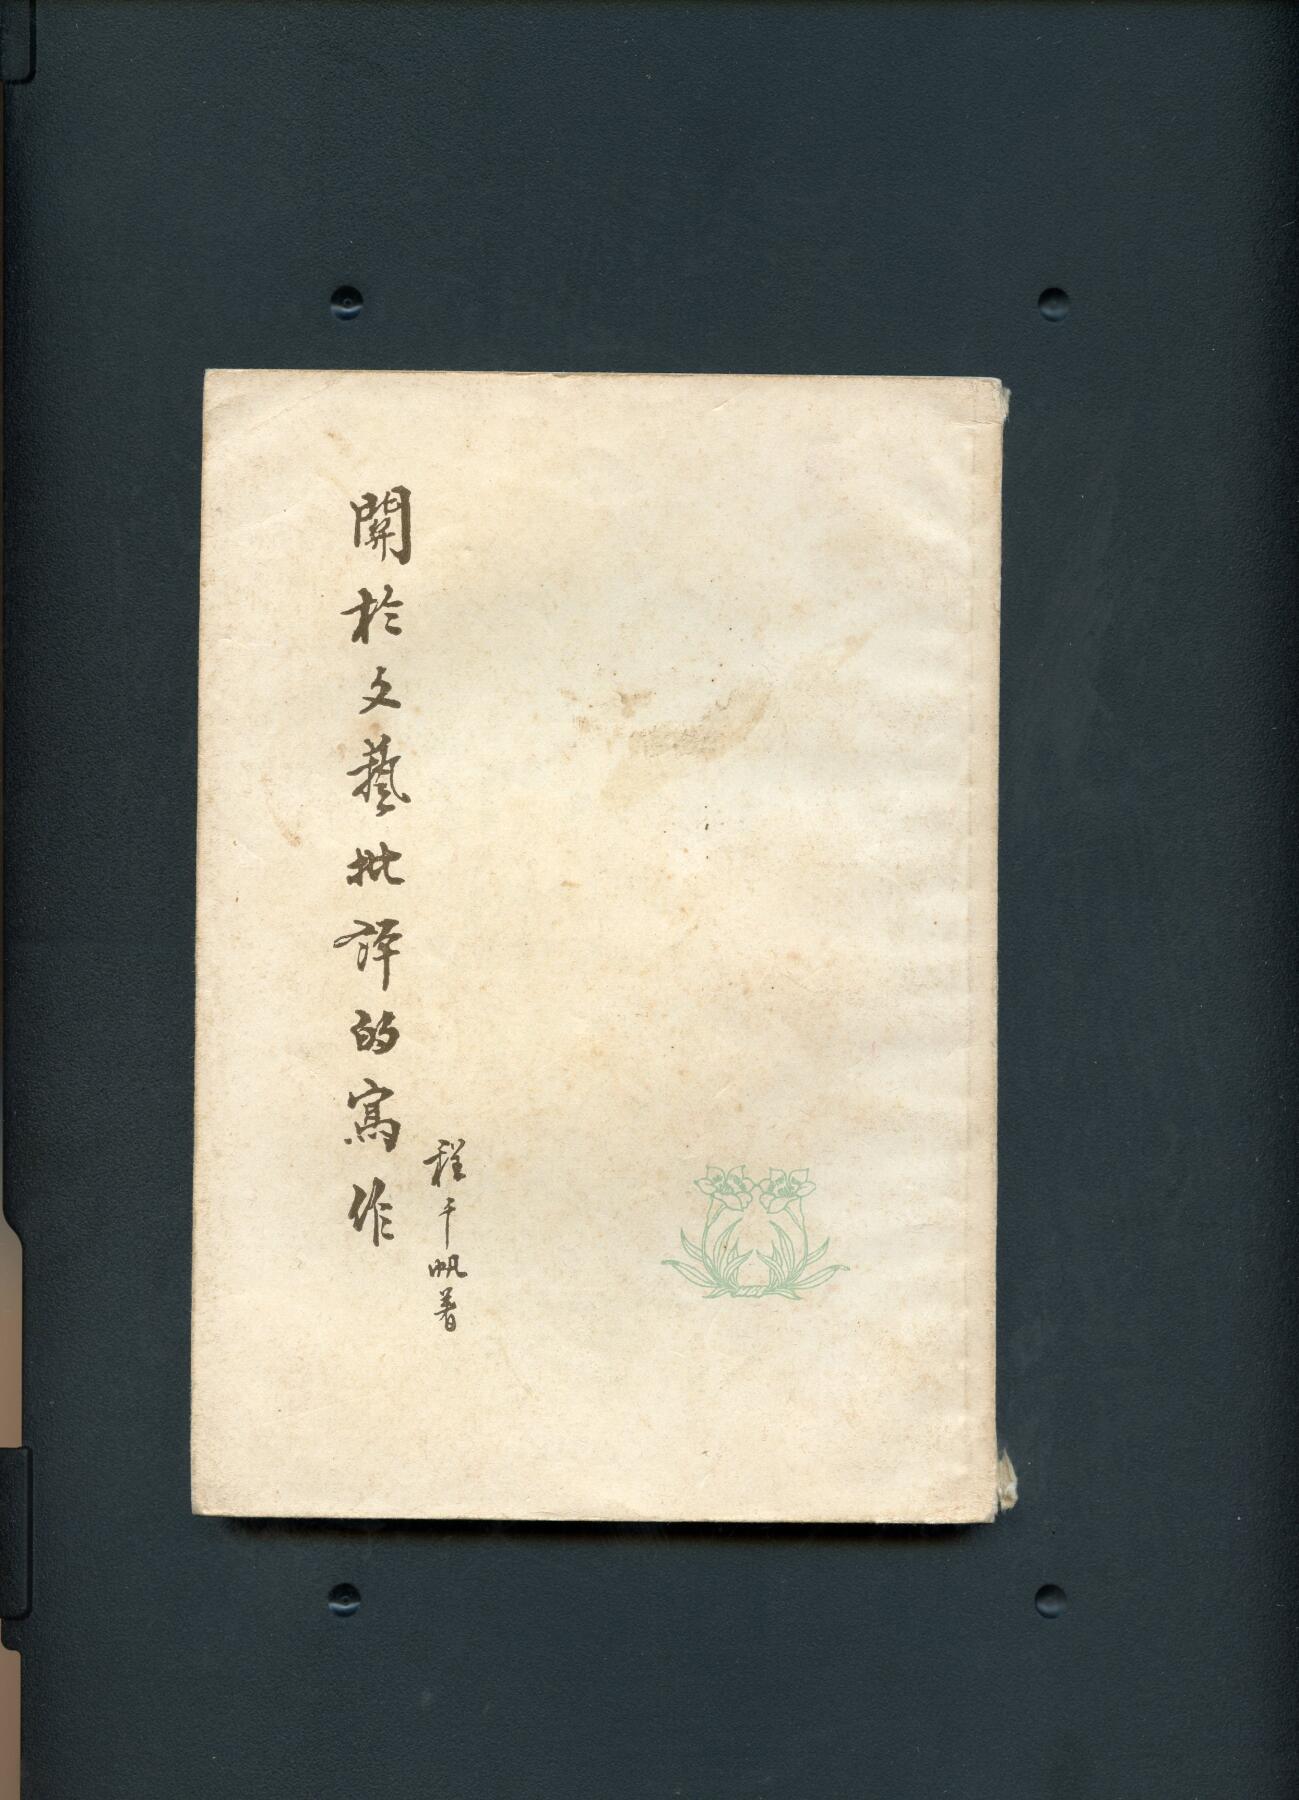 關於文藝批評的寫作
程千帆著